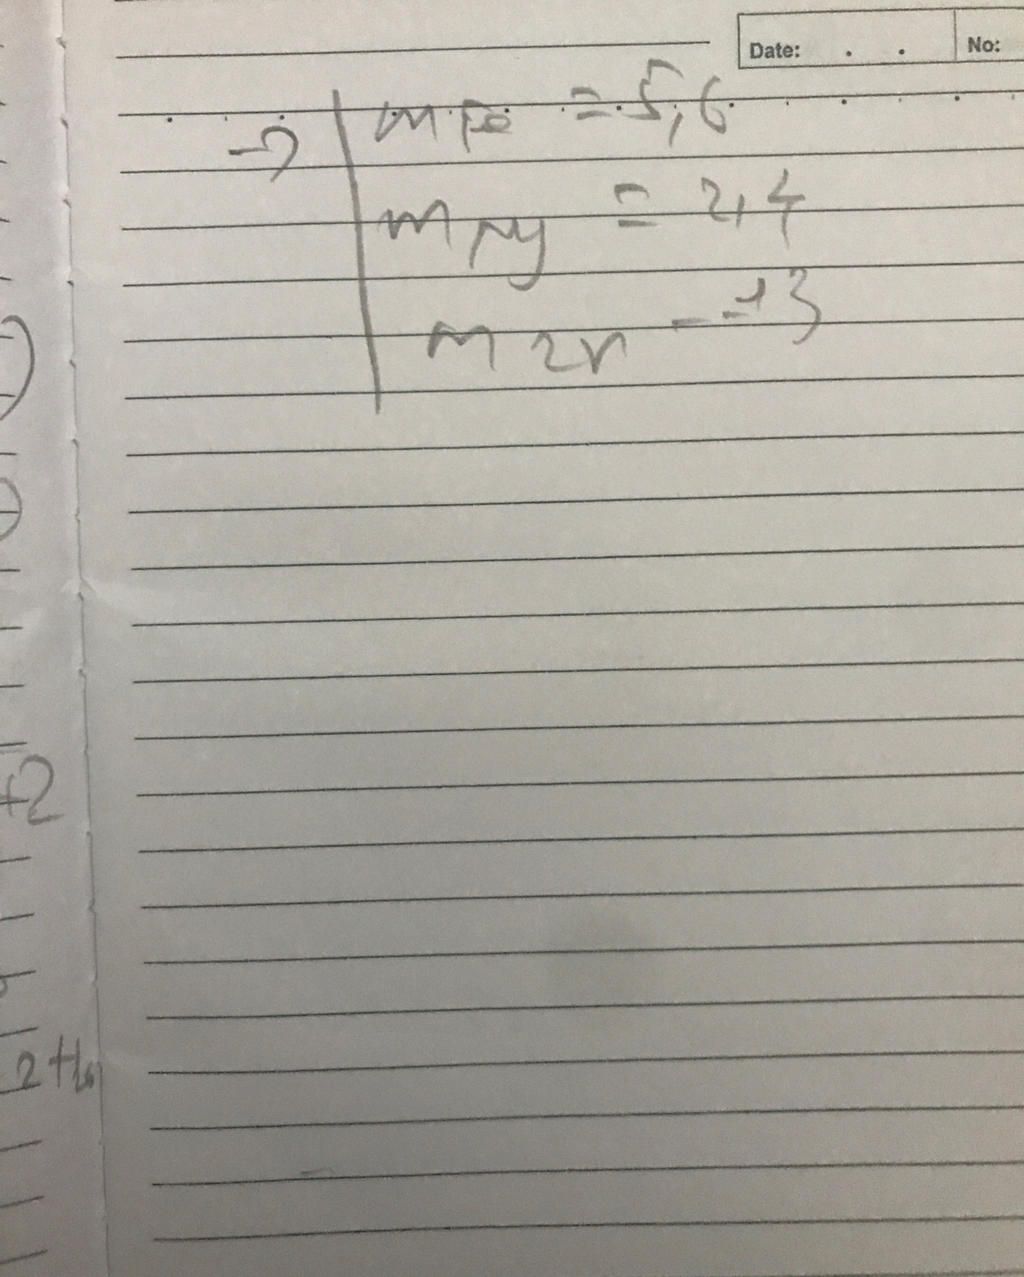 Date: . . No:
→ m Fe = 5,6
m My = 2,4
m Zn = 13
+2
2 H